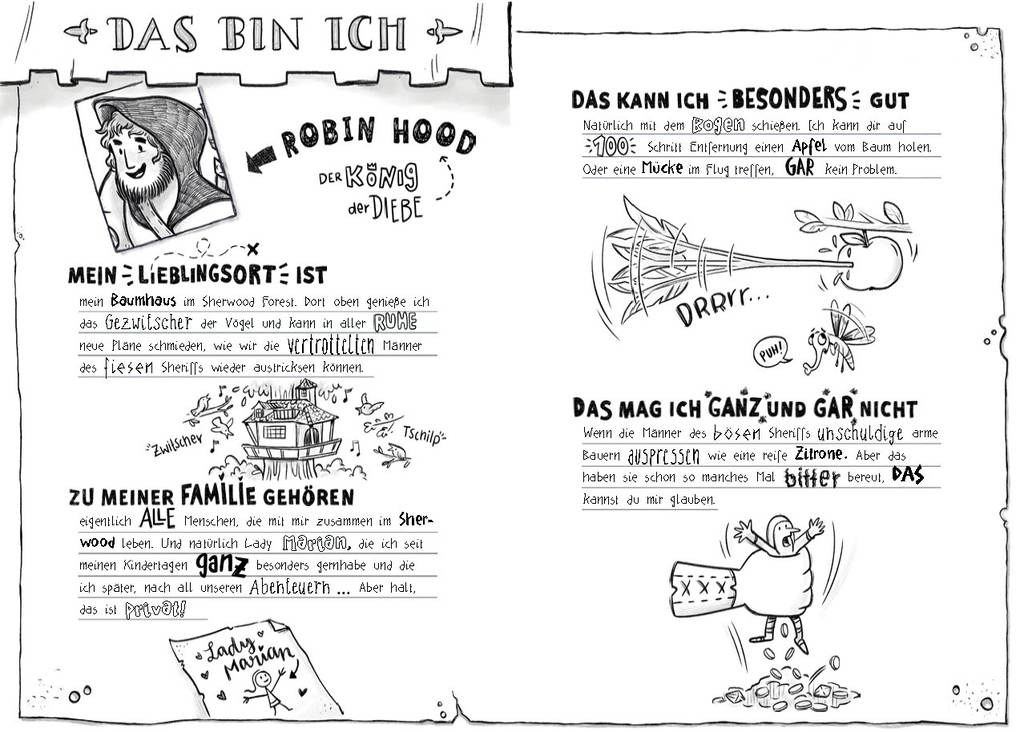 DAS BIN ICH
ROBIN HOOD
DER KÖNIG
der DIEBE
MEIN LIEBLINGSORT IST
mein Baumhaus im Sherwood Forest. Dort oben genieße ich
das Gezwitscher der Vögel und kann in aller RUHE
neue Pläne schmieden, wie wir die vertrottelten Männer
des fiesen Sheriffs wieder austricksen können.
"Zwitscher
Tschilp"
ZU MEINER FAMILIE GEHÖREN
eigentlich ALLE Menschen, die mit mir zusammen im Sher-
wood leben. Und natürlich Lady Marian, die ich seit
meinen Kindertagen ganz besonders gernhabe und die
ich später, nach all unseren Abenteuern ... Aber halt,
das ist privat!
Lady
Marian
DAS KANN ICH BESONDERS GUT
Natürlich mit dem Bogen schießen. Ich kann dir auf
100 Schritt Entfernung einen Apfel vom Baum holen.
Oder eine Mücke im Flug treffen, GAR kein Problem.
DRRrr...
PUH!
DAS MAG ICH GANZ UND GAR NICHT
Wenn die Männer des bösen Sheriffs unschuldige arme
Bauern auspressen wie eine reife Zitrone. Aber das
haben sie schon so manches Mal bitter bereut, DAS
kannst du mir glauben.